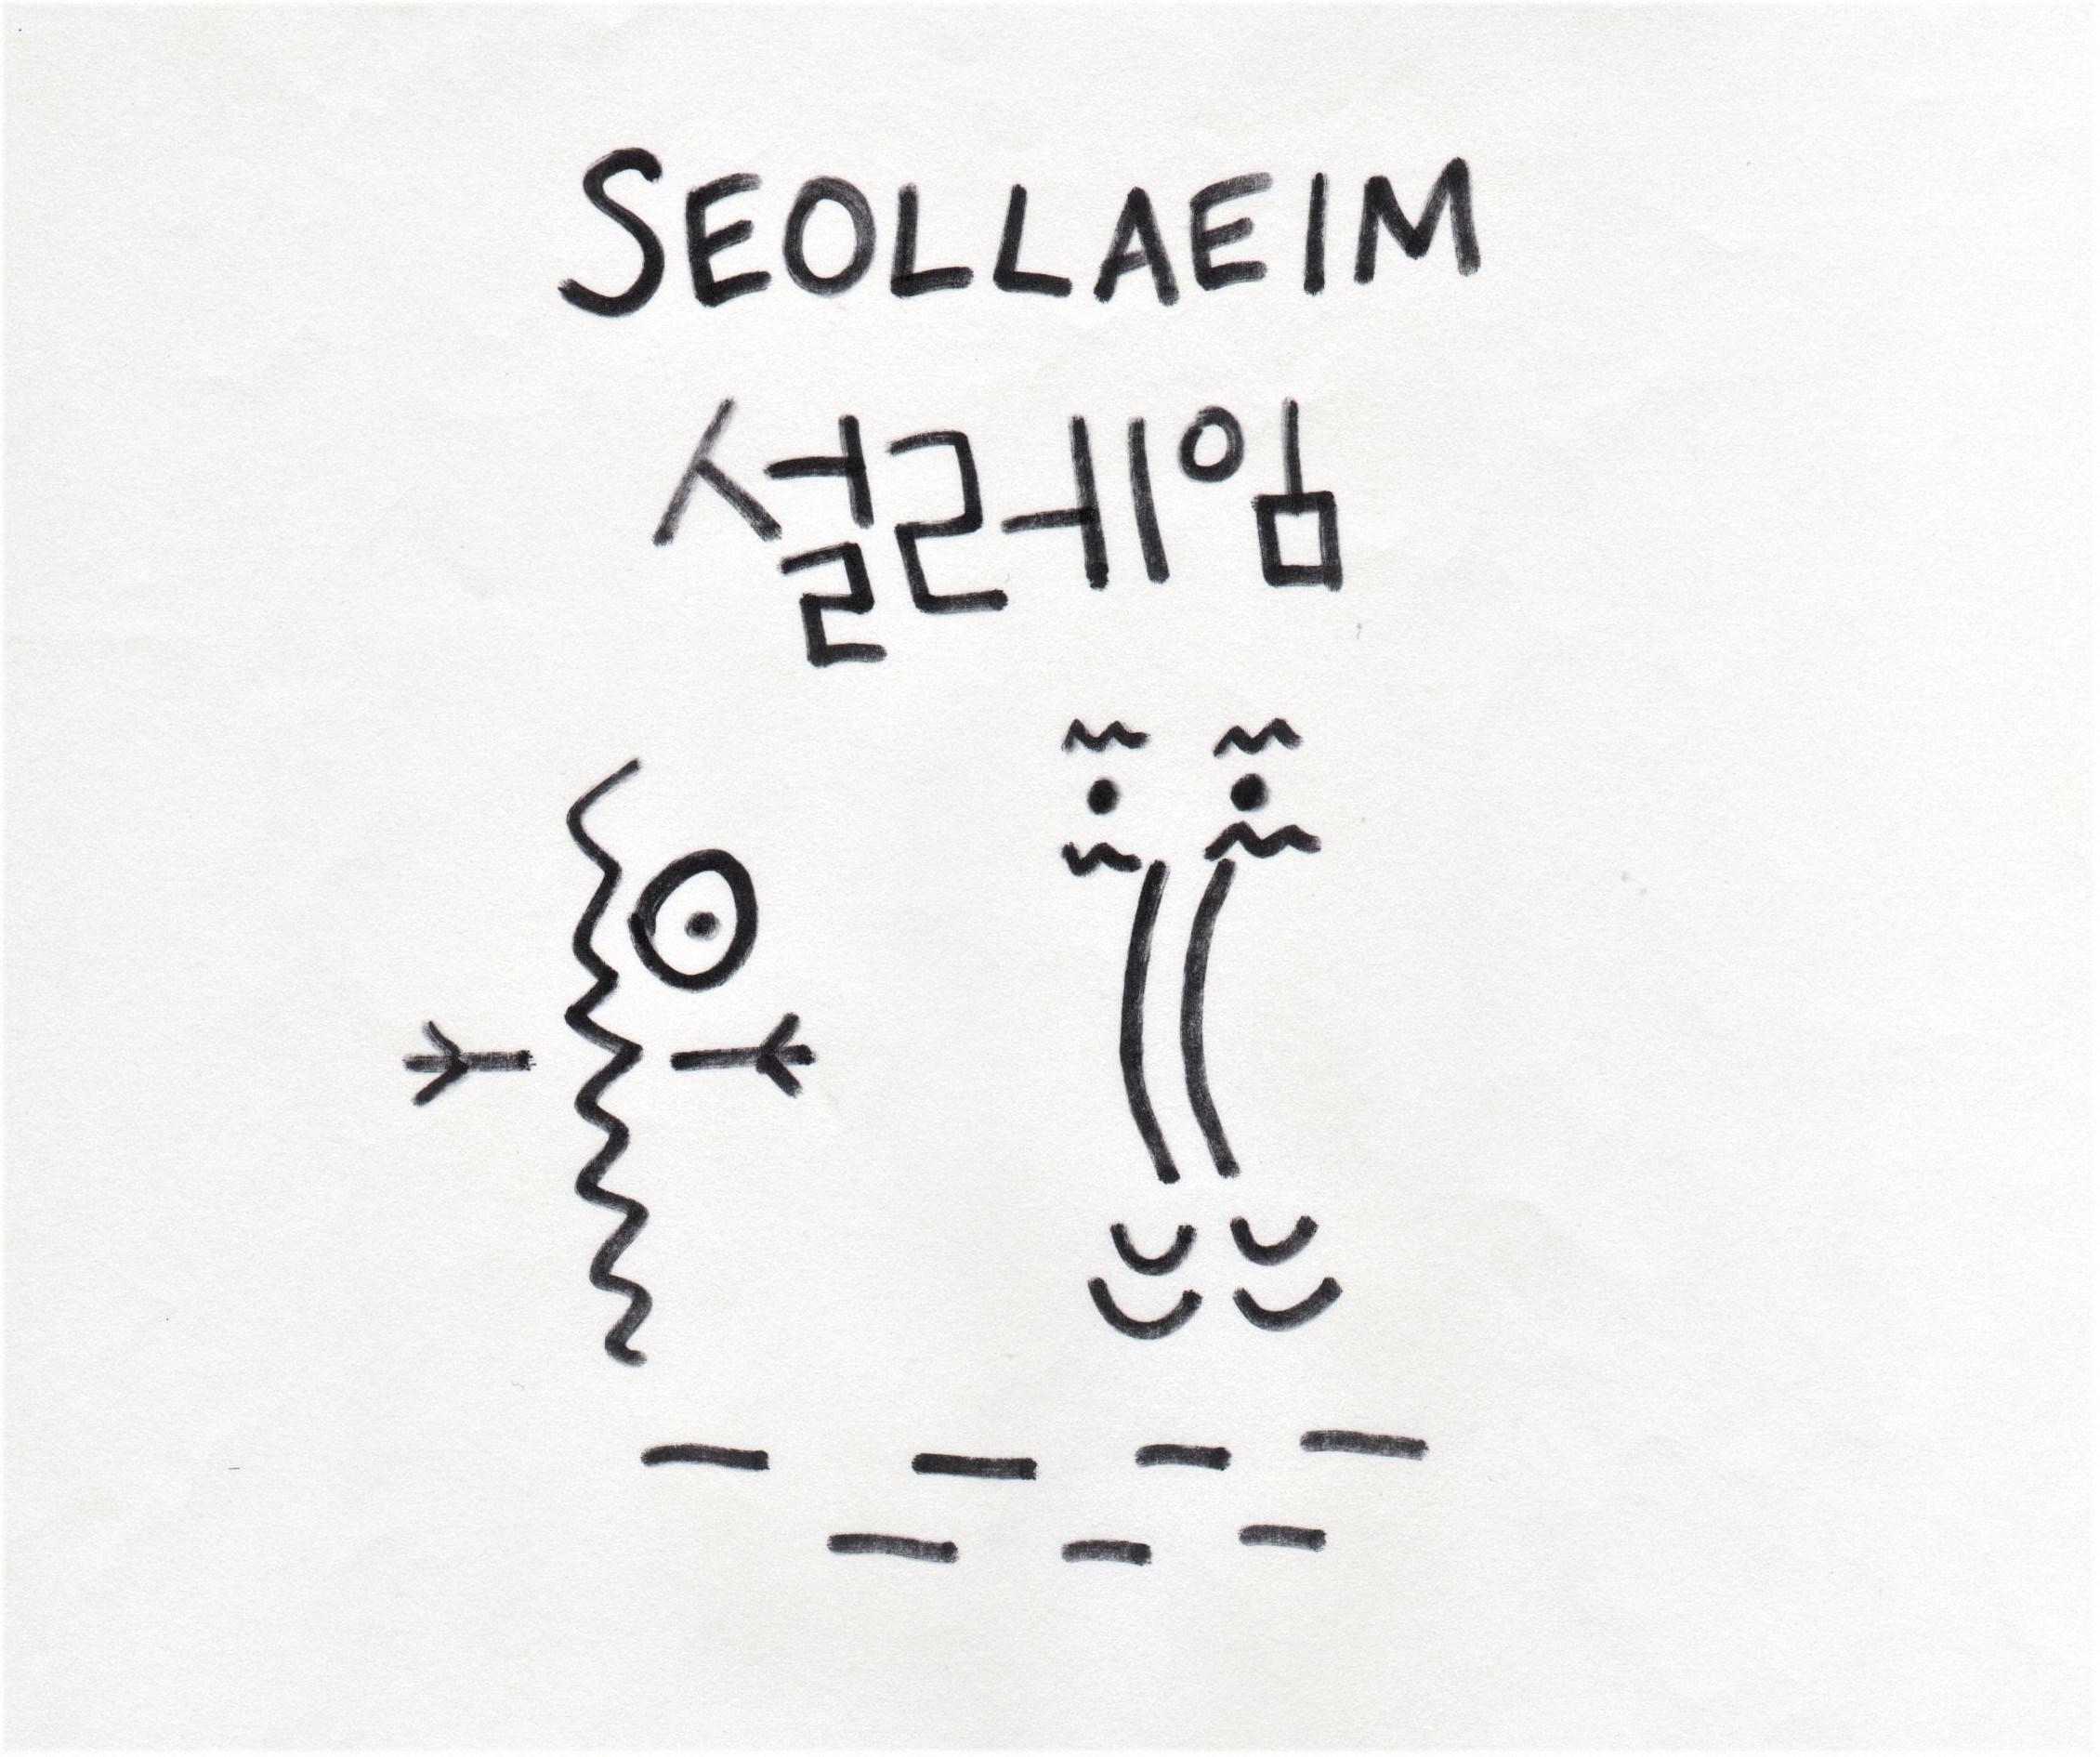 SEOLLAEIM
설레임